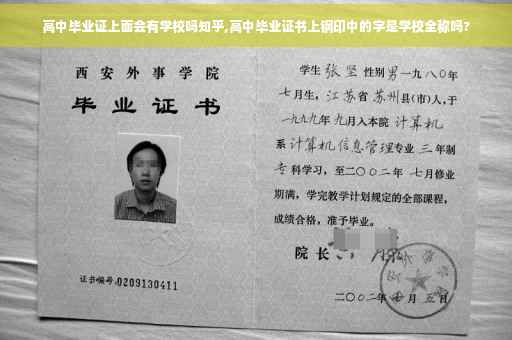 高中毕业证上面会有学校吗知乎,高中毕业证书上钢印中的字是学校全称吗?
西安外事学院
毕业证书
证书编号:0209130411
学生 张坚 性别 男 一九八〇年
七月生, 江苏省 苏州 县(市)人,于
一九九九年 九月入本院 计算机
系 计算机信息管理 专业 三 年制
专 科学习, 至二〇〇二年 七月修业
期满, 学完教学计划规定的全部课程,
成绩合格, 准予毕业。
院长
二〇〇二年 月 五 日